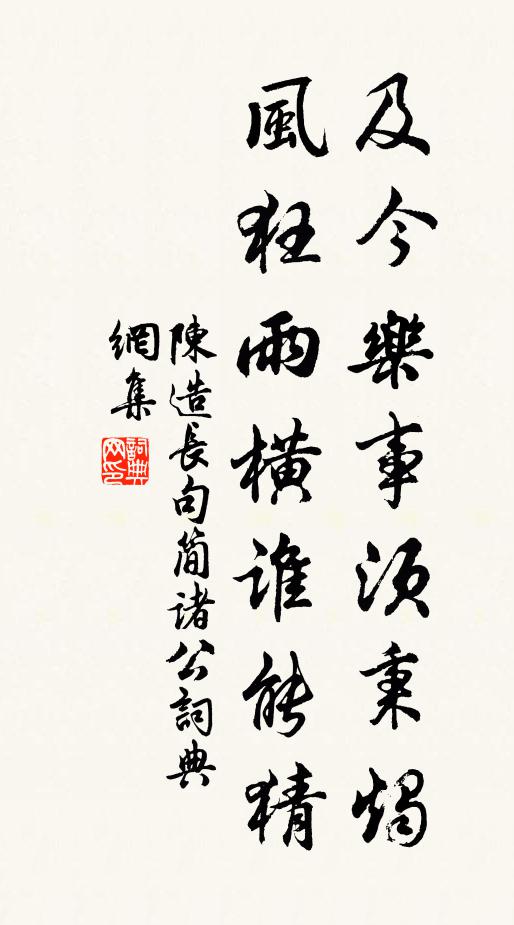 及今樂事須秉燭
風狂雨橫誰能猜
陳造長句簡諸公詞典
網集
詞典網印